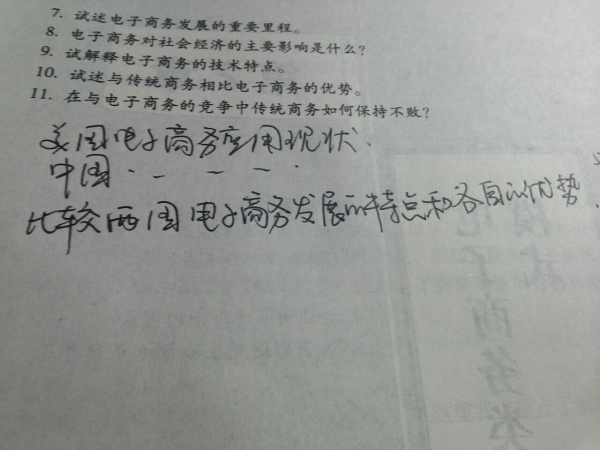 7. 试述电子商务发展的重要里程。
8. 电子商务对社会经济的主要影响是什么?
9. 试解释电子商务的技术特点。
10. 试述与传统商务相比电子商务的优势。
11. 在与电子商务的竞争中传统商务如何保持不败?
美国电子商务应用现状.
中国 · — — — ·
比较两国电子商务发展的特点和各自的优势.